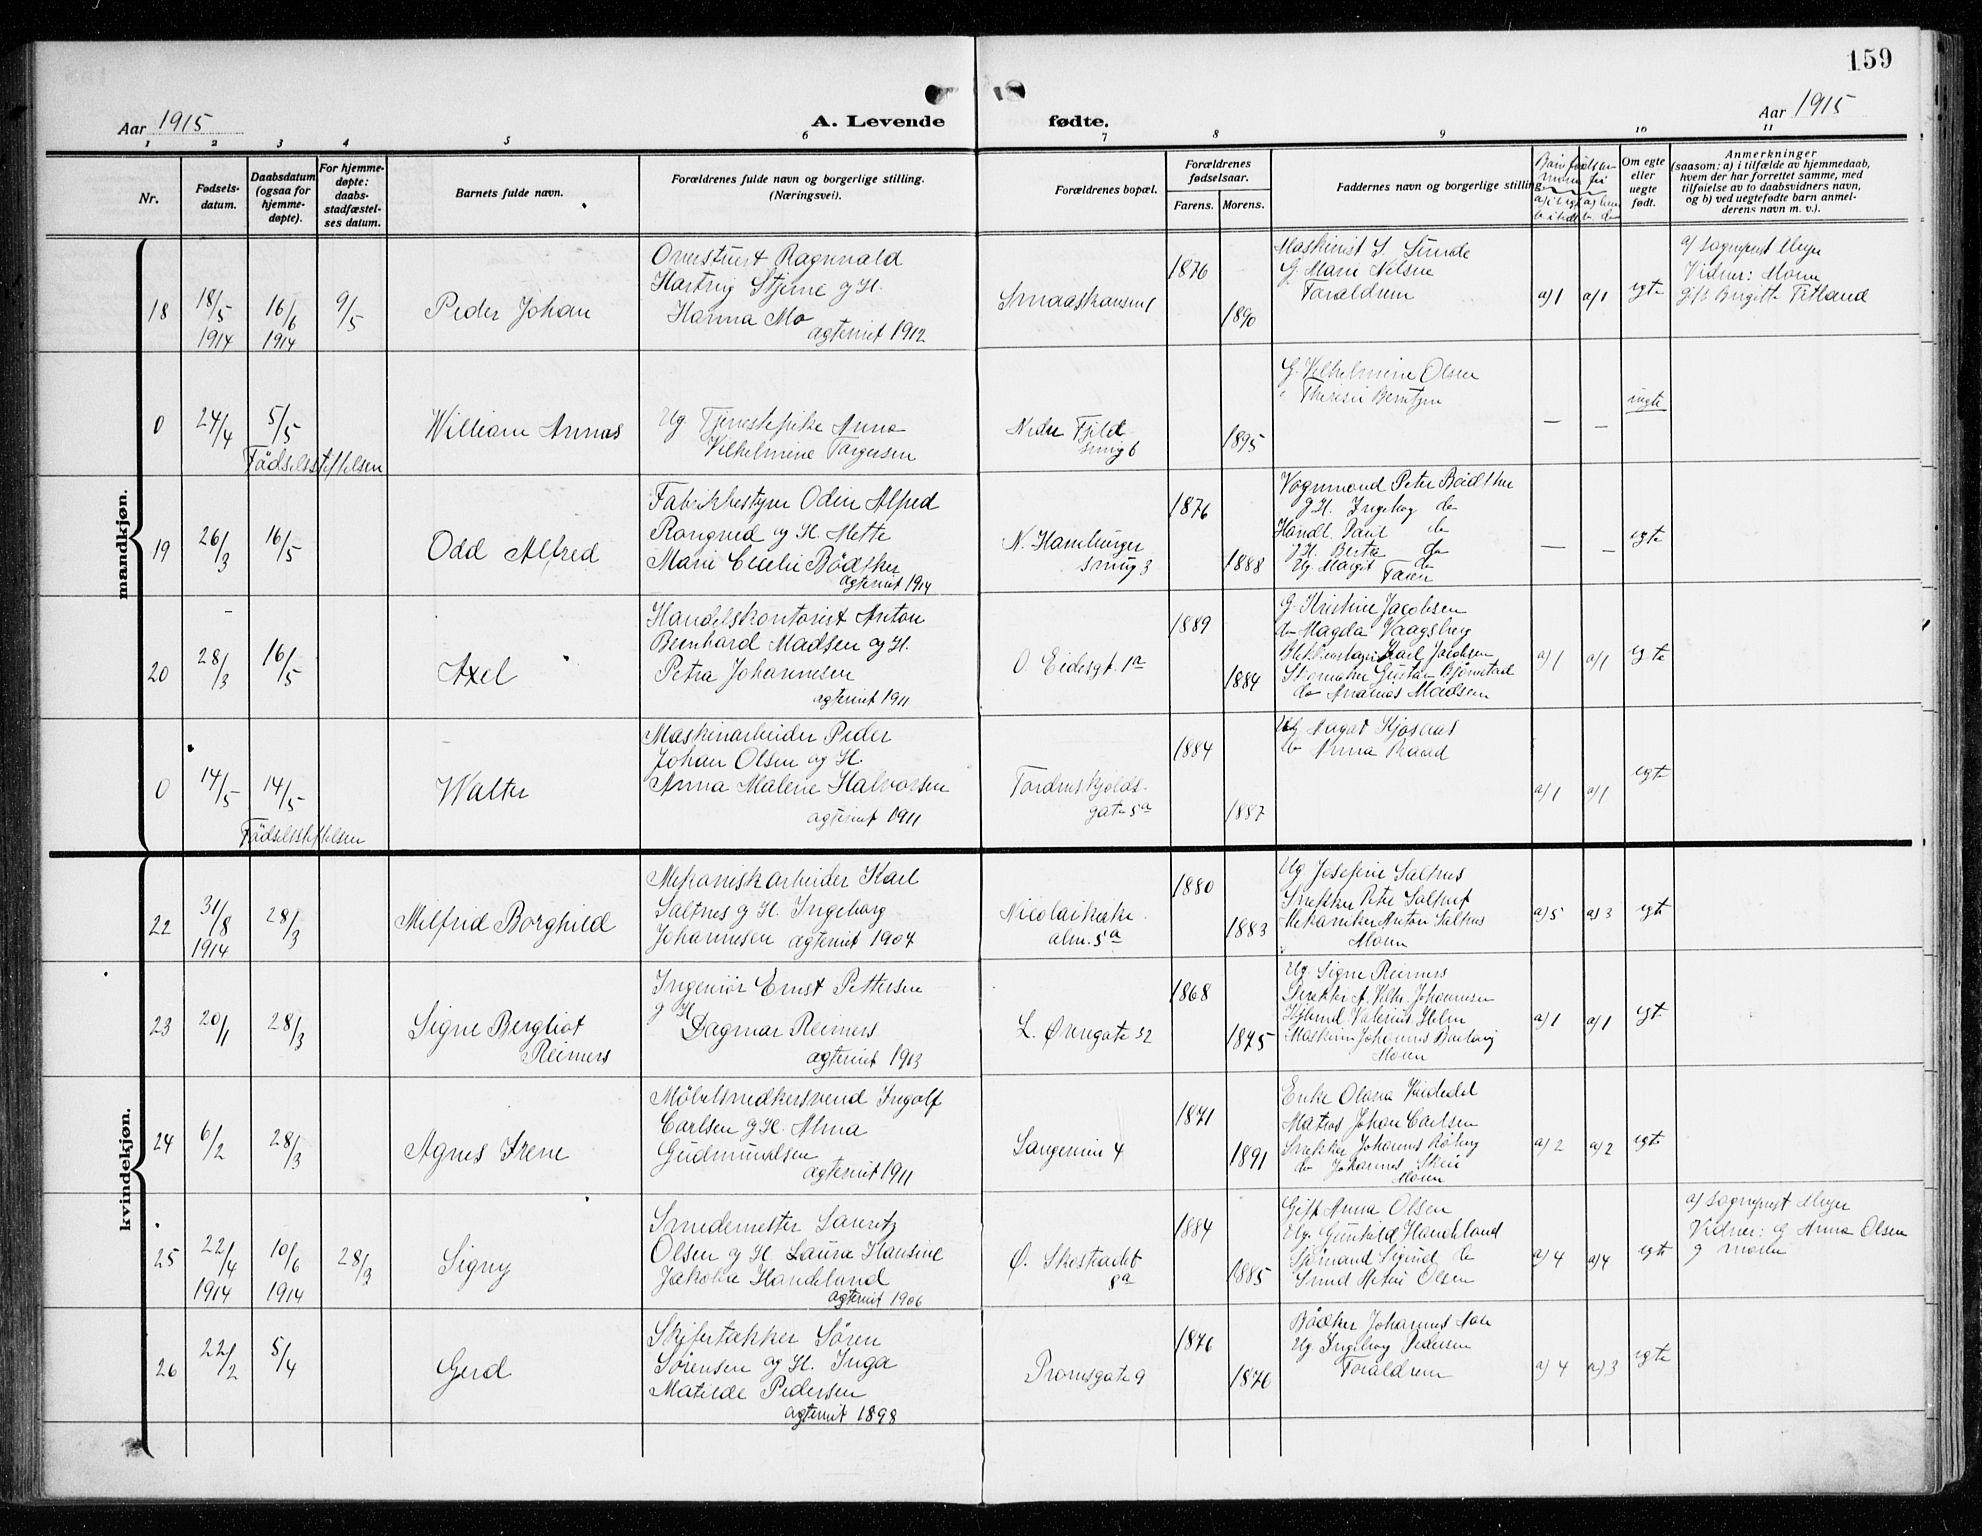 159
Aar 1915
A. Levende fødte.
Aar 1915
1 2 3 4 5 6 7 8 9 10 11
Nr.
Fødsels-
datum.
Daabsdatum
(ogsaa for
hjemme-
døpte).
For hjemme-
døpte:
daabs-
stadfæstel-
ses datum.
Barnets fulde navn.
Forældrenes fulde navn og borgerlige stilling.
(Næringsvei).
Forældrenes bopæl.
Forældrenes
fødselsaar.
Farens. Morens.
Faddernes navn og borgerlige stilling.
Om egte
eller
uegte
født.
Anmerkninger
(saasom: a) i tilfælde av hjemmedaab,
hvem der har forrettet samme, med
tilføielse av to daabsvidners navn,
og b) ved uegtefødte barn anmel-
derens navn m. v.).
mandkjøn.
18
18/5
1914
16/6
1914
9/5
Peder Johan
Ragnvald
Stjerne og H.
Hanna Mo
agteviet 1912
1876
1890
Maskinist S. Sunde
G. Marie Nilsen
Forældrene
a/1 a/1
egte
a/ Sogneprest Meyer
Vidner: Moren
Gift Birgitte Fitland
0
24/4
5/5
Fødselsstiftelsen
William Annas
Ug Tjenestepike Anna
Vilhelmine Torgersen
Nedre Fjeld
smug 6
1895
G. Vilhelmine Olsen
" Therese Berntzen
— —
uegte
19
26/3
16/5
Odd Alfred
Fabrikbestyrer Odin Alfred
Rongved og H. Mette
Marie Cecilie Bødtker
agteviet 1914
N. Hamburger
smug 3
1876
1888
Vognmand Peter Bødtker
g H. Ingeborg do
Handl. Paul do
g H. Berta do
Ug. Margit do
Faren
— —
egte
20
28/3
16/5
Axel
Handelskontorist Anton
Bernhard Madsen og H.
Petra Johannesen
agteviet 1911
O. Eidesgt. 1a
1889
1884
G. Kristine Jacobsen
do Magda Vaagsberg
Karl Jacobsen
Gustav Bjørnstad
do Madsen
a/1 a/1
egte
0
14/5
14/5
Fødselsstiftelsen
Walter
Maskinarbeider Peder
Johan Olsen og H.
Anna Malene Halvorsen
agteviet 1911
Tordenskjolds-
gate 5a
1884
1887
do Anna Raaad
a/1 a/1
egte
kvindekjøn.
22
31/8
1914
28/3
Milfrid Borghild
Mekaniskarbeider Karl
Saltnes g H. Ingeborg
Johannesen agteviet 1904
Nicolaikirke
alm. 5a
1880
1883
Ug Josefine Saltnes
Snekker Peter Saltnes
Mekaniker Anton Saltnes
Moren
a/5 a/3
egte
23
20/1
28/3
Signe Bergliot
Reimers
Ingeniør Ernst Pettersen
g H
Dagmar Reimers
agteviet 1913
L. Øvregate 32
1868
1875
Ug. Signe Reimers
Direktør A. Vilh. Johannesen
Valerius Holm
Maskinm Johannes
Moren
a/1 a/1
egte
24
6/2
28/3
Agnes Irene
Møbelsnedkersvend Ingolf
Carlsen g H. Alma
Gudmundsen
agteviet 1911
Langeveien 4
1871
1891
Enke Olava
Matros Johan Carlsen
Snekker Johannes
do Johannes
Moren
a/2 a/2
egte
25
22/4
1914
10/6
1914
28/3
Signy
Smedemester Lauritz
Olsen g H Laura Hansine
Jakobia Handeland
agteviet 1906
Ø. Skostrædet
8a
1884
1885
Gift Anna Olsen
Ug. Gunhild Handeland
Sjømand Sigurd do
Smed Peter Olsen
a/4 a/4
egte
a/ Sogneprest Meyer
Vidner: G Anna Olsen
g moren
26
22/2
5/4
Gerd
Skifertækker Søren
Sørensen og H. Inga
Matilde Pedersen
agteviet 1898
Promsgate 9
1876
1876
Bødker Johannes
Ug. Ingeborg Pedersen
Forældrene
a/4 a/3
egte